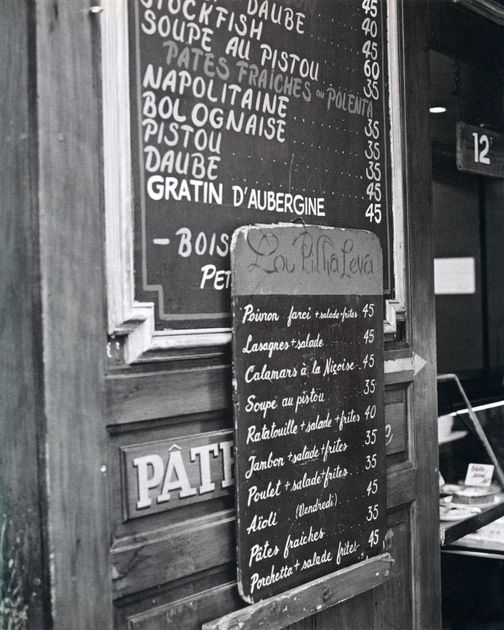 DAUBE 45
STOCKFISH 40
SOUPE AU PISTOU 60
PATES FRAICHES OU POLENTA 35
NAPOLITAINE 35
BOLOGNAISE 35
PISTOU 35
DAUBE 45
GRATIN D'AUBERGINE 45
- BOIS
PET
12
Lou Pilha Leva
Poivron farci + salade + frites 45
Lasagnes + salade 45
Calamars à la Niçoise 45
Soupe au pistou 35
Ratatouille + salade + frites 40
Jambon + salade + frites 35
Poulet + salade + frites 35
Aïoli (Vendredi) 45
Pâtes fraîches 35
Porchetta + salade frites 45
PÂTE